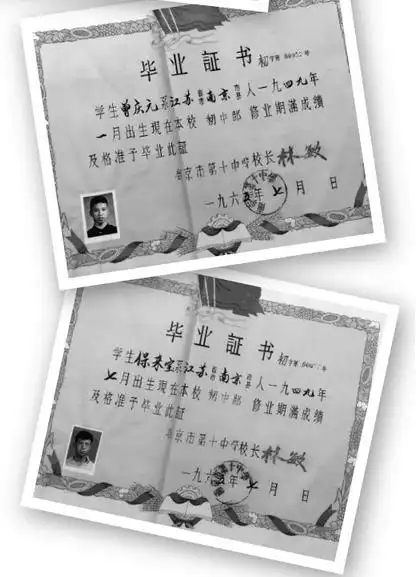 毕业証书
初字第
学生曾庆元系江苏省市南京市县人一九四九年
一月出生現在本校初中部修业期滿成績
及格准予毕业此証
南京市第十中学校长林敏
一九六五年六月 日
毕业証书
初字第
学生保来宝系江苏省市南京市县人一九四九年
七月出生現在本校初中部修业期滿成績
及格准予毕业此証
南京市第十中学校长林敏
一九六五年六月 日